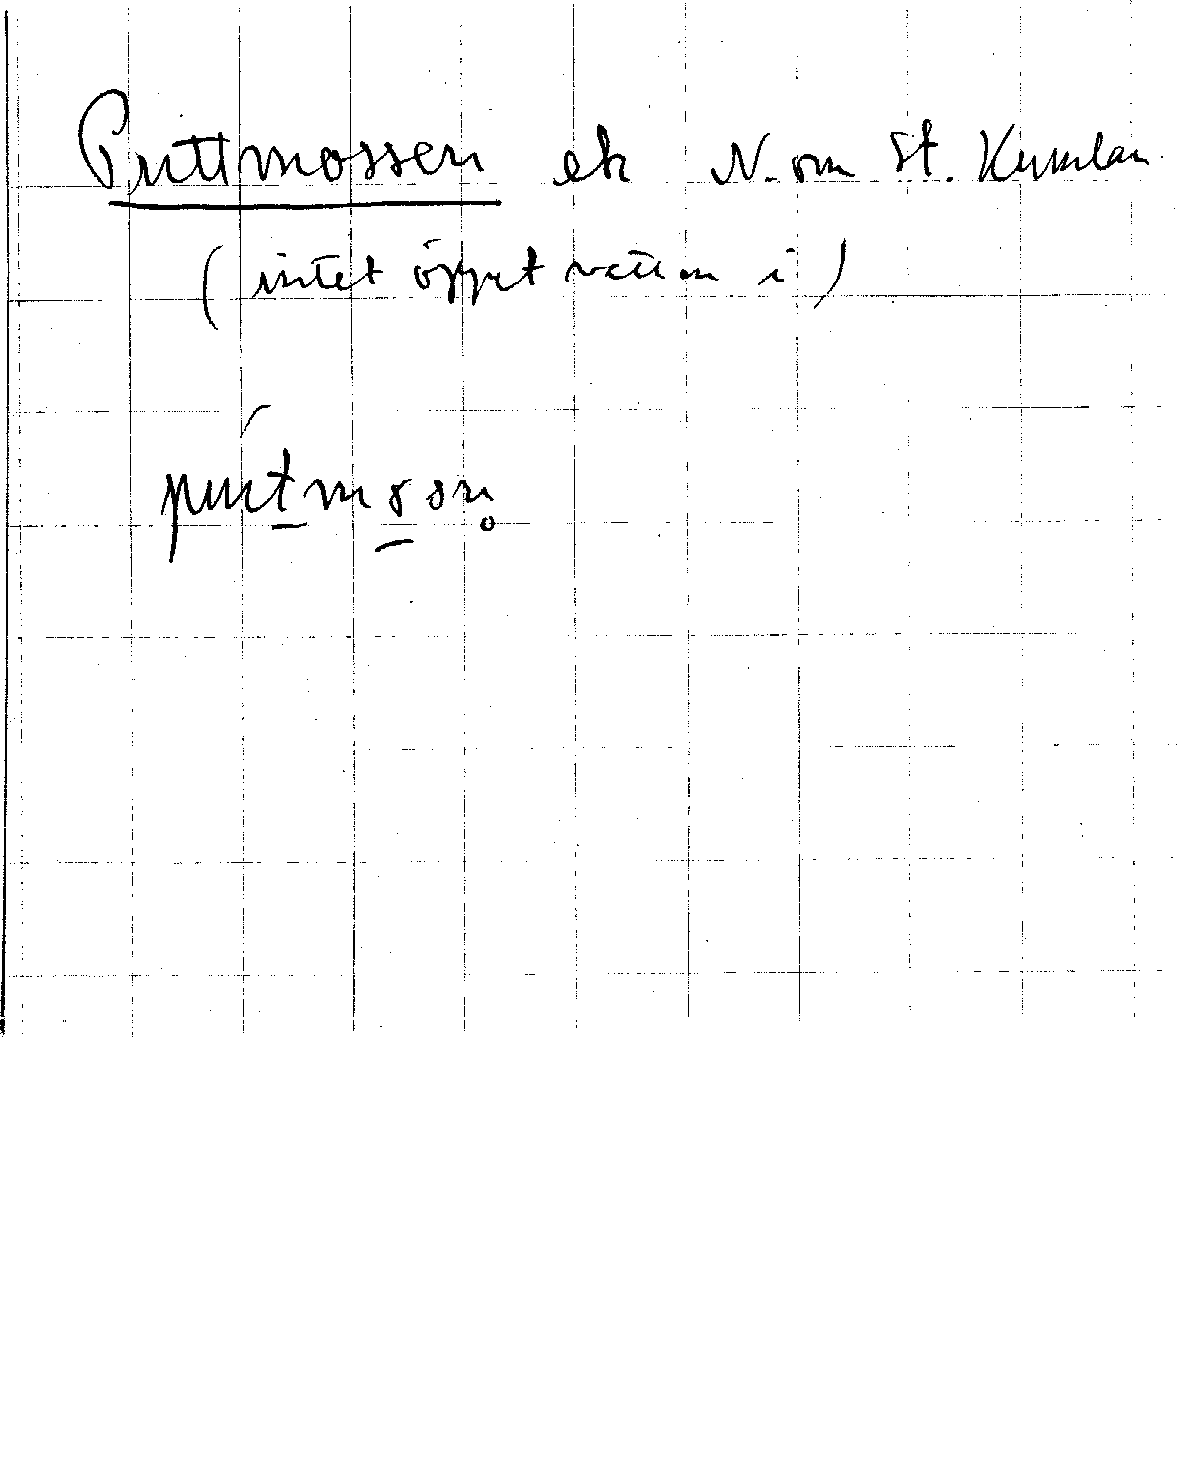 Puttmossen ek N. om St. Kumlan
(intet öppet vatten i)
putmosn̥